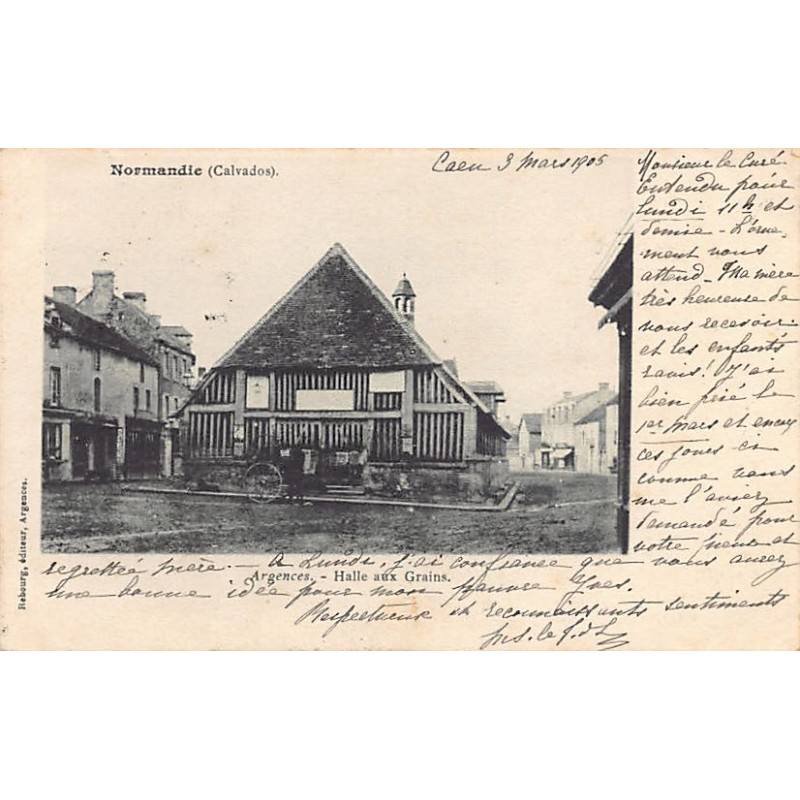 Normandie (Calvados).
Caen 3 Mars 1905
Monsieur le Curé
Entendu pour
lundi 11 h et
demie - L'orne
ment vous
attend - Ma mère
très heureuse de
vous recevoir
et les enfants
ravis! J'ai
bien prié le
1er Mars et
ces jours ci
comme vous
me l'aviez
demandé pour
votre et
regrettée mère. - A Lundi, j'ai confiance que vous aurez
une bonne idée pour mon pauvre Yves.
Respectueux et reconnaissants sentiments
Argences. - Halle aux Grains.
Rebourg, éditeur, Argences.